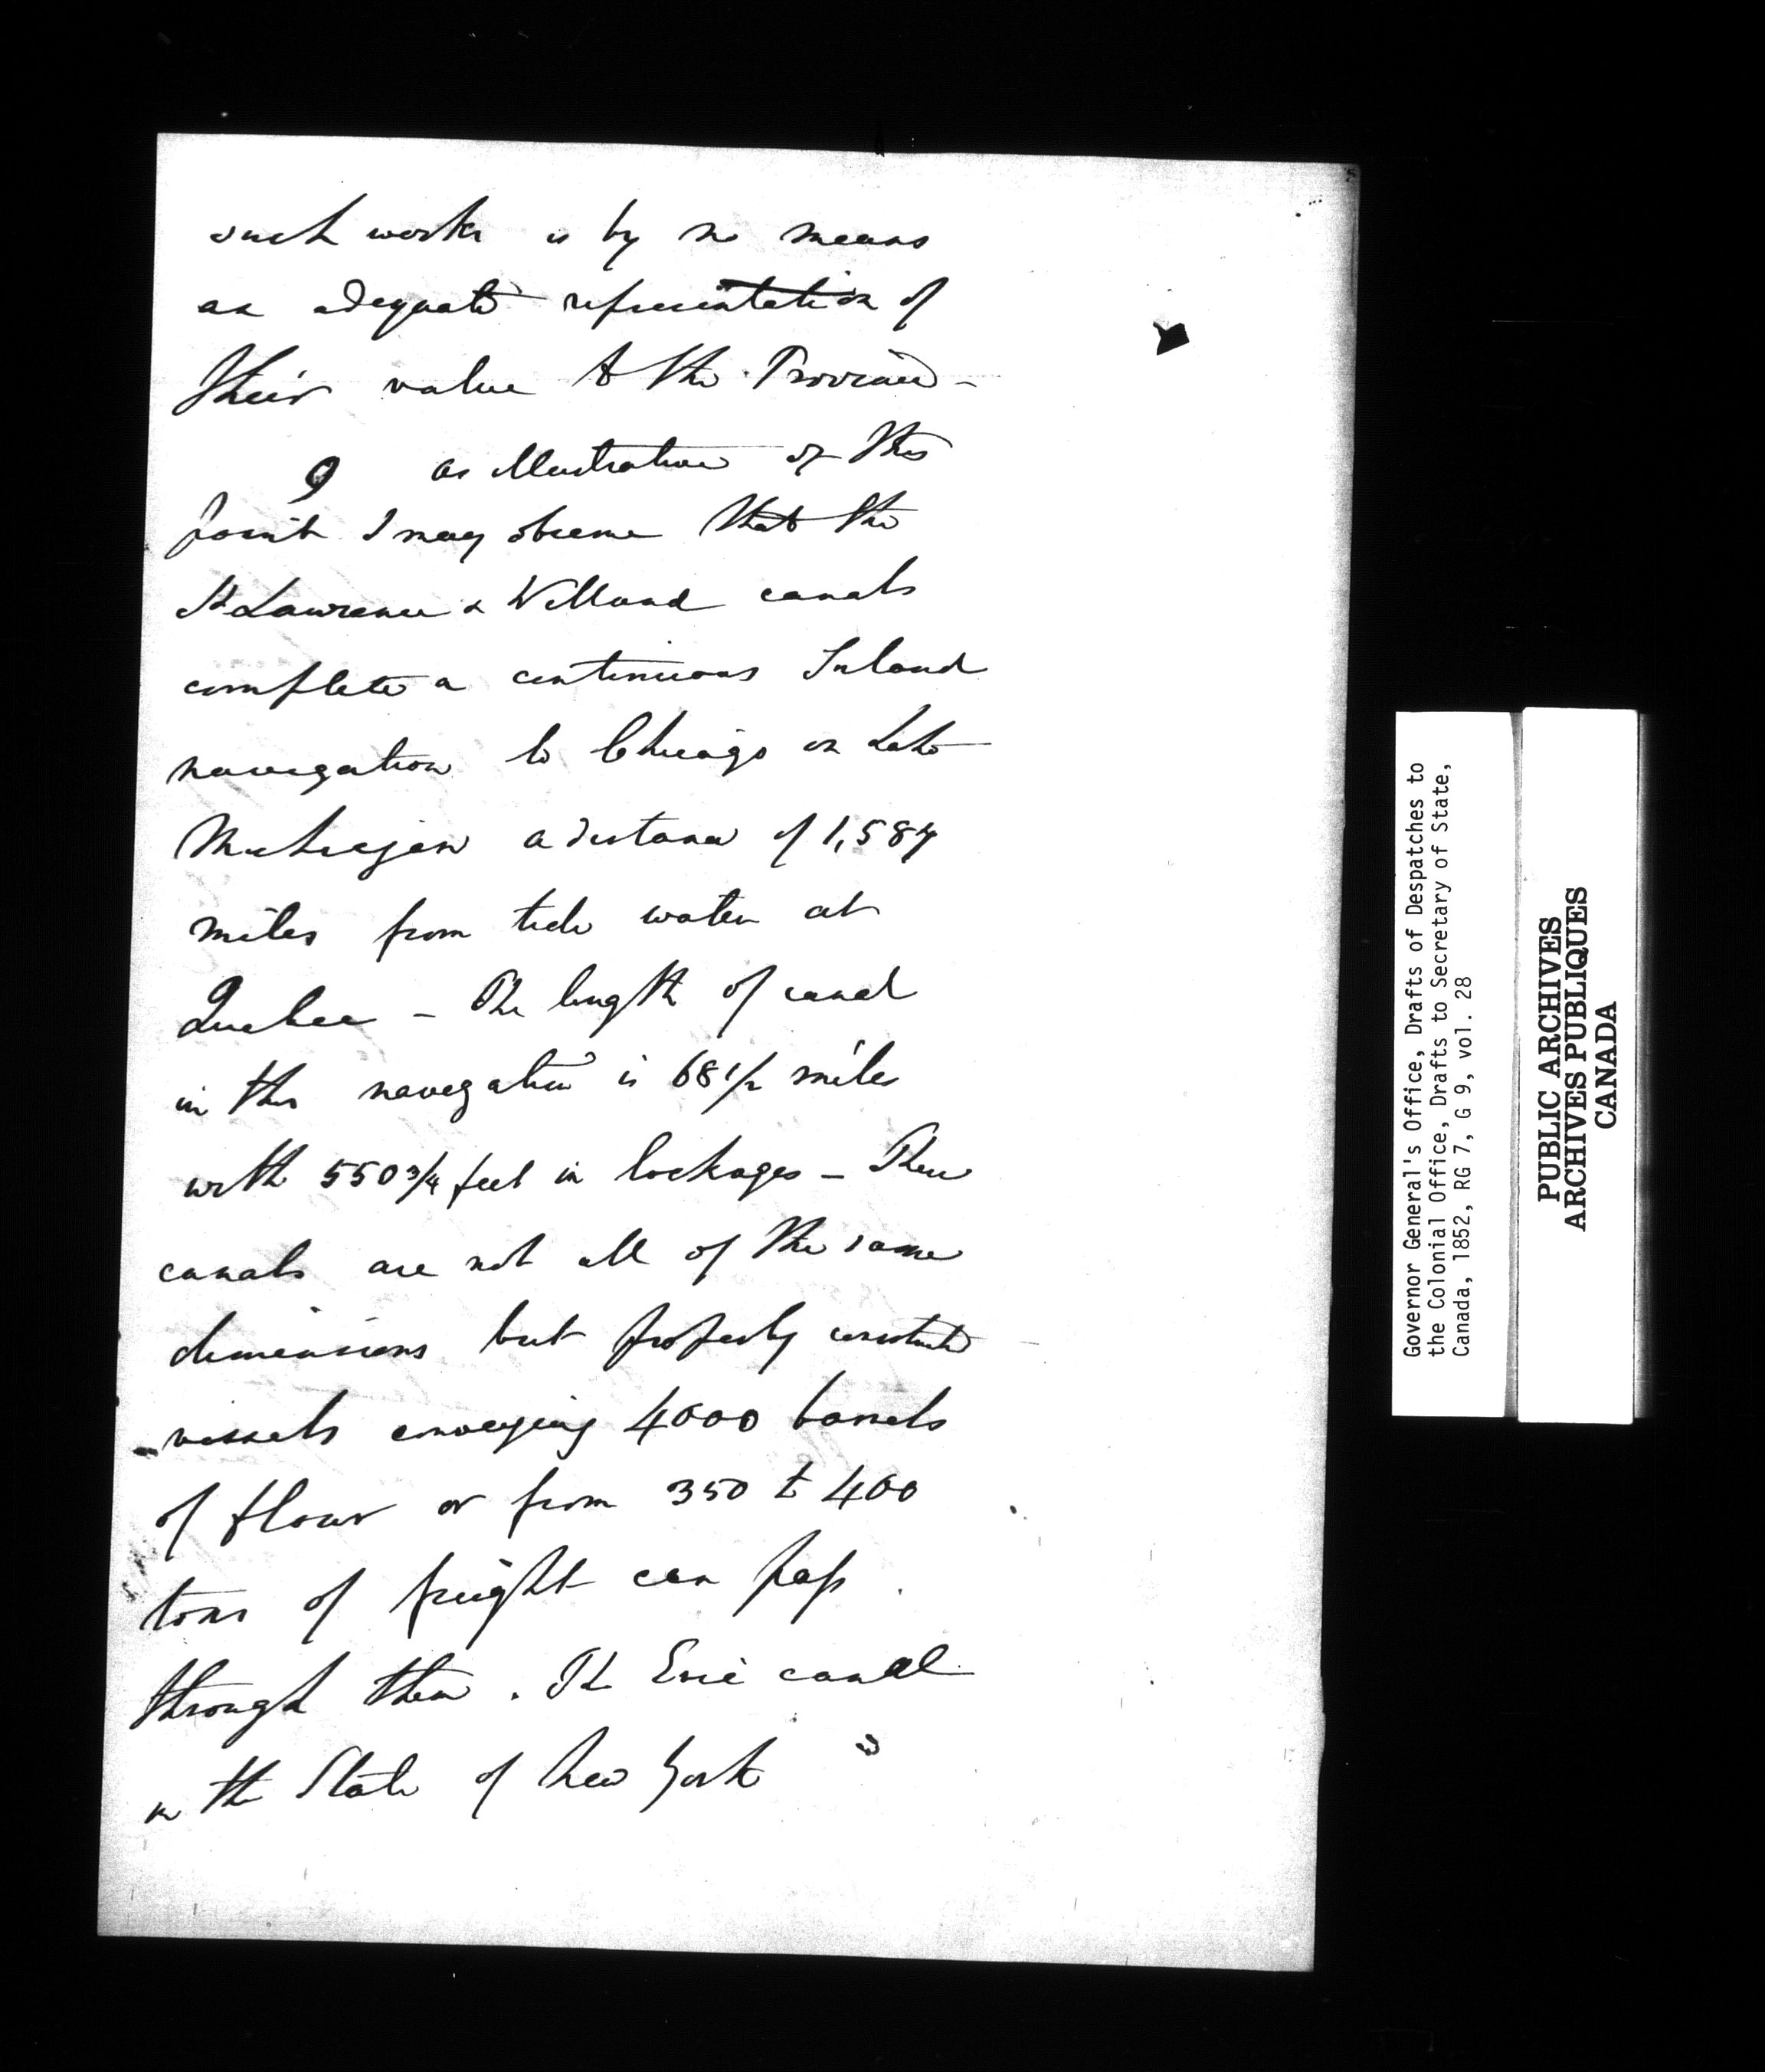 such works is by no means
an adequate representation of
their value to the Province -
9 as illustrative of this
point I may observe that the
St Lawrence & Welland canals
complete a continuous Inland
navigation to Chicago on Lake
Michigan a distance of 1,587
miles from tide water at
Quebec - The length of canal
in this navigation is 68 1/2 miles
with 550 3/4 feet in lockages - These
canals are not all of the same
dimensions but properly constructed
vessels conveying 4000 barrels
of flour or from 350 to 400
tons of freight can pass
through them . The Erie canal
in the State of New York is
Governor General's Office, Drafts of Despatches to
the Colonial Office, Drafts to Secretary of State,
Canada, 1852, RG 7, G 9, vol. 28
PUBLIC ARCHIVES
ARCHIVES PUBLIQUES
CANADA